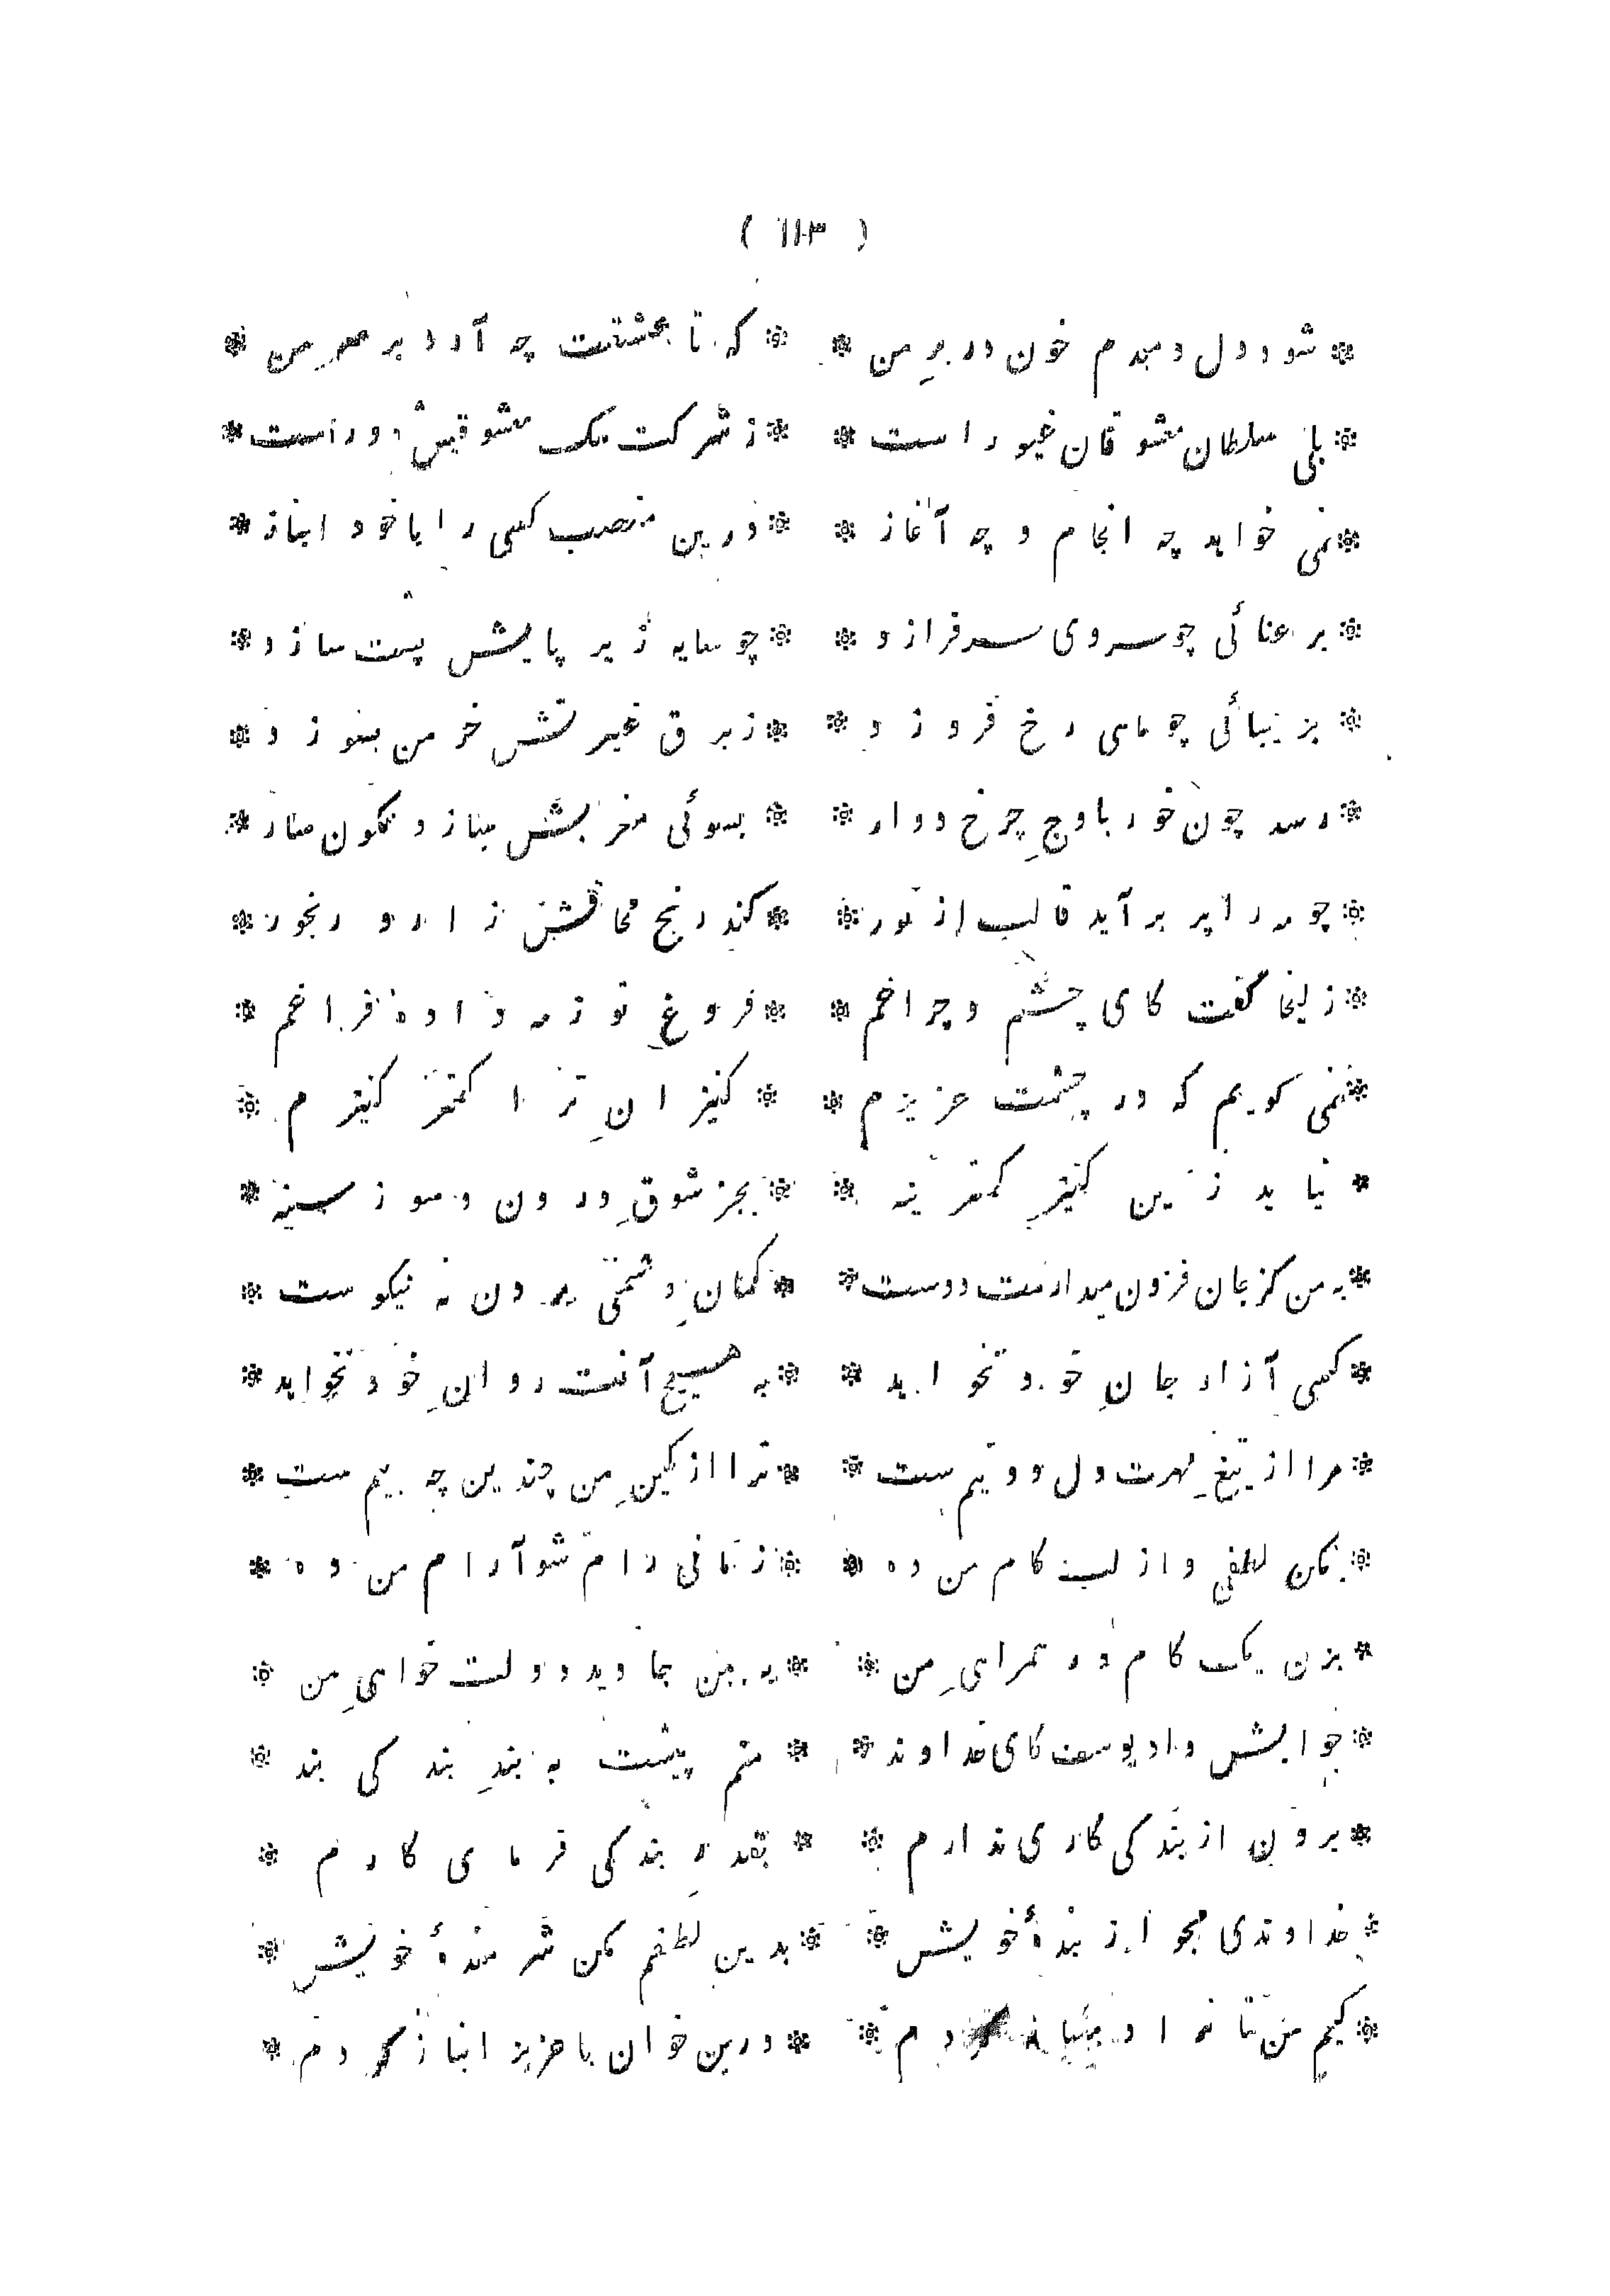 ( ١١٣ )
* شود دل دمبدم خون در برِ من * * که تا عشقت چه آرد بر سرِ من *
* بلی سلطان معشوقان غیور است * * ز شرکت ملک معشوقیش دور است *
* نمی خواهد چه انجام و چه آغاز * * درین منصب کسی را با خود انباز *
* برعنائی چو سروی سرفرازد * * چو سایه زیر پایش پست سازد *
* بزیبائی چو ماهی رخ فروزد * * ز برق غیرتش خرمن بسوزد *
* رسد چون خور باوجِ چرخ دوار * * بسوئی مغربش سازد نگون سار *
* چو مه را پر برآید قالب از نور * * کند رنج محاقش زار و رنجور *
* زلیخا گفت کای چشم و چراغم * * فروغِ تو ز مه داده فراغم *
* نمی گویم که در چشمت عزیزم * * کنیزانِ ترا کمتر کنیزم *
* نیاید زین کنیزِ کمترینه * * بجز شوقِ درون و سوز سینه *
* به من کز جان فزون میدارمت دوست * * گمانِ دشمنی بردن نه نیکوست *
* کسی آزار جانِ خود نخواهد * * به هیچ آفت روانِ خود نخواهد *
* مرا از تیغِ مهرت دل دو نیم ست * * ترا از کینِ من چندین چه بیم ست *
* بکن لطفی و از لب کام من ده * * زمانی رام شو آرام من ده *
* بزن یک گام در همراهیِ من * * به بین جاوید دولت خواهیِ من *
* جوابش داد یوسف کای خداوند * * منم پیشت به بندِ بندگی بند *
* برون از بندگی کاری ندارم * * بقدرِ بندگی فرمای کارم *
* خداوندی مجو از بندهٔ خویش * * بدین لطفم مکن شرمندهٔ خویش *
* کیم من تا ترا دمساز گردم * * درین خوان با عزیز انباز گردم *